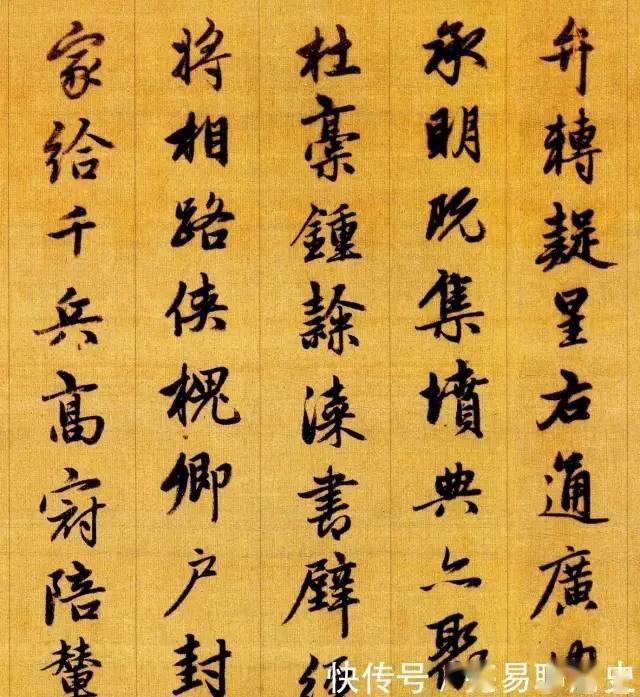 弁轉疑星右通廣內
承明既集墳典亦聚
杜稾鍾隸漆書壁經
將相路俠槐卿戶封
家給千兵高冠陪輦
快传号/ 史